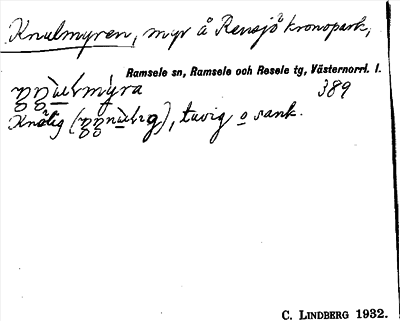 Knulmyren, myr å Rensjö kronopark,
Ramsele sn, Ramsele och Resele tg, Västernorrl. l.
389
Knölig, tuvig o sank.
C. LINDBERG 1932.